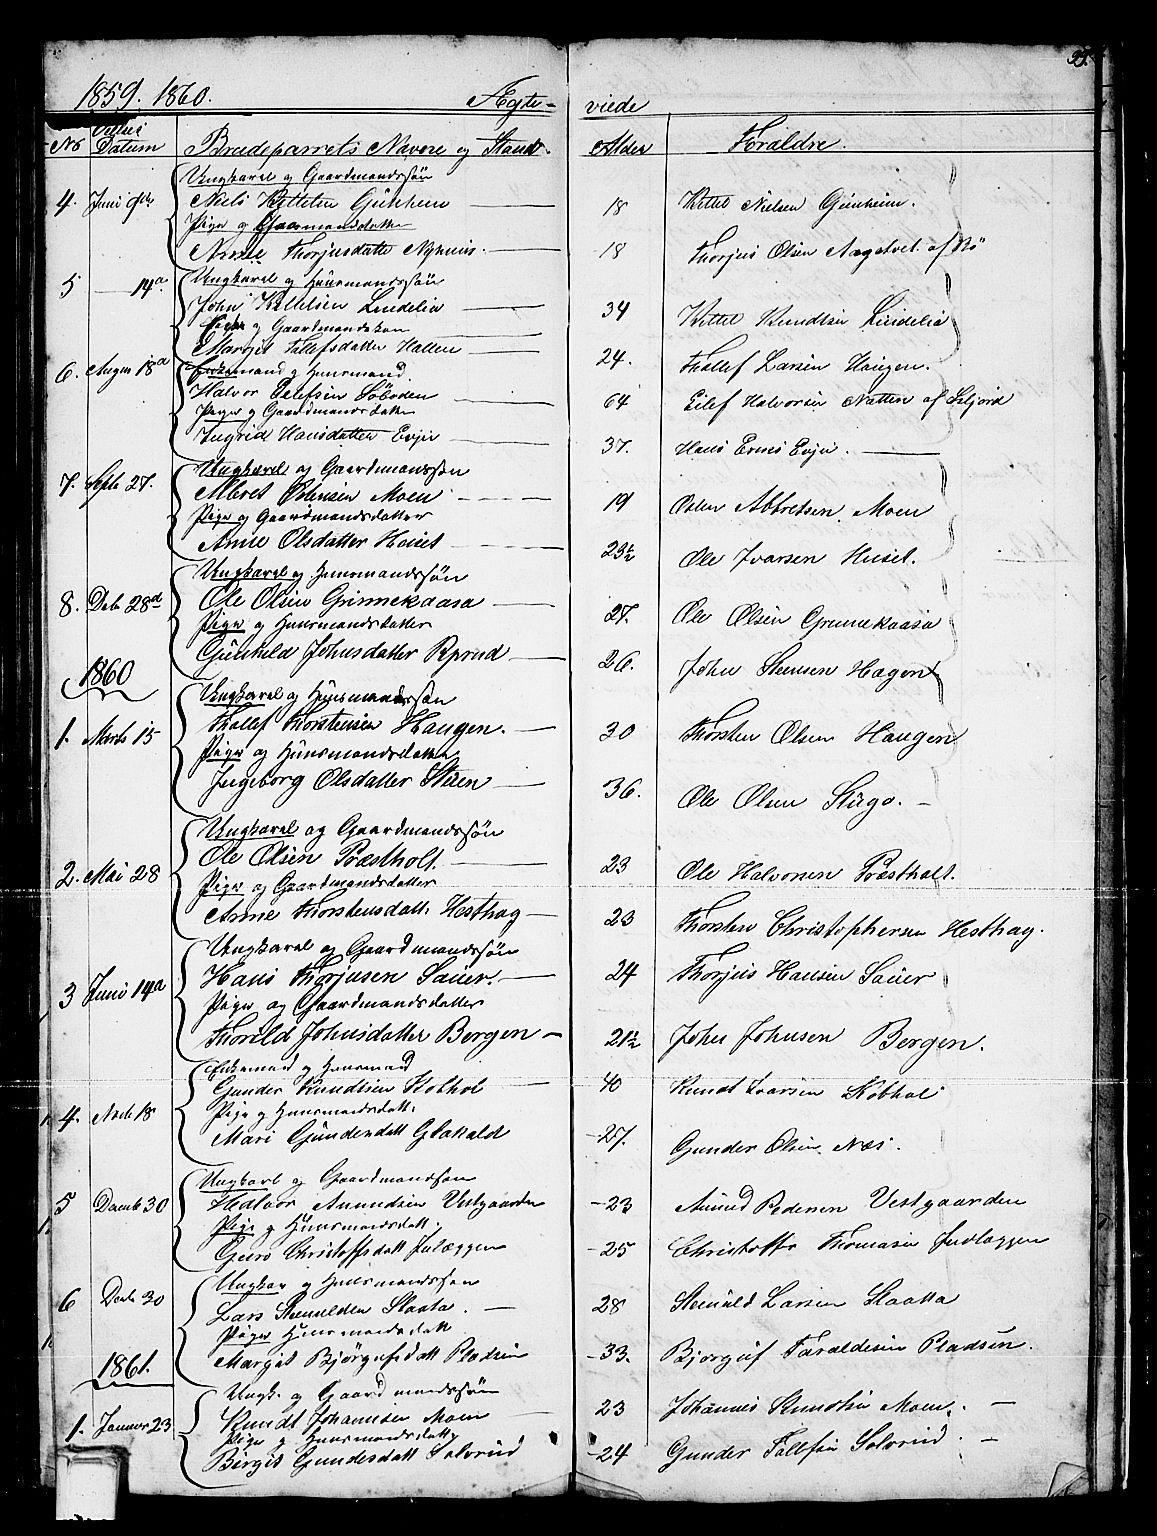 99.
1859. 1860. Ægte- viede
No Vielses Datum Brudeparrets Navne og Stand. Alder Forældre.
Ungkarel og Gaardmandssøn
4. Juni 9de Niels Kittelsen Günheim 18 Kittel Nielsen Günheim.
Pige og Gaarmandsdatter
Anne Thorjusdatter Nyhuus. 18 Thorjus Olsen Aagetvet af Bø
Ungkarel og Huusmandssøn
5 — 14de John Kittelsen Lindelia 34 Kittel Knudtsen Lindelia
og Gaardmandsken
Margit Tollefsdatter Hallen 24. Thollef Larsen Haugen.
6. August 18de Enkemand og Huusmand.
Halvor Eilefsen Søboden 64 Eilef Halvorsen Natten af Seljord
Pige og Gaardmandsdatter
Ingrid Hansdatter Evju 37. Hans Evju.
Ungkarel og Gaardmandssøn
7. Septb 27. Albret Østensen Moen 19 Østen Albretsen Moen
Pige og Gaardmandsdatter
Anne Olsdatter Huset 23½ Ole Ivarsen Huset.
Ungkarel og Huusmandssøn
8. Decb 28de Ole Olsen Grinnekaasa 27. Ole Olsen Grunnekaasa
Pige og Huusmandsdatter
Günhild Johnsdatter 26. John Steensen Hagen
1860
Ungkarel og Huusmandssøn
1. Marts 15 Thollef Thorstensen Haugen. 30 Thorsten Olsen Haugen
Pige og Huusmandsdatter
Ingeborg Olsdatter Stuen 36. Ole Olsen Stügo.
Ungkarel og Gaardmandssøn
2. Mai 28 Ole Olsen Præstholt. 23 Ole Halvorsen Præstholt.
Pige og Gaardmandsdatter
Anne Thorstensdatt: Hesthag 23 Thorsten Christophersen Hesthag.
Ungkarel og Gaardmandssøn
3 Juni 14de Hans Thorjusen Sauer. 24 Thorjus Hansen Sauer
Pige og Gaardmandsdatter
Thorild Johnsdatter Bergen 21½ John Johnsen Bergen.
Enkemand og Huusmand
4. Novb 18 Gunder Knudtsen Kothol 40 Knudt Ivarsen Kobhol
Pige og Huusmandsdatt:
Mari Gündersdatt 27. Gunder Olsen Næs.
Ungkarl og Gaardmandssøn
5 Decemb 30 Halvor Amundsen Vestgaarden 23 Amund Pedersen Vestgaarden
Pige og Huusmandsdatt:
Guro Christoffersdatt Indlæggen 25 Christoffer Thomasen Indlaggen
Ungkar og Huusmandssøn
6 Decb 30 Lars Steinulden Slaata. 28 Steinuld Larsen Slaatta
Pige Huusmandsdatt
Margit Bjørgufsdatt Pladsen 33. Bjorguf Taraldesen Pladsen.
1861.
Ungk. og Gaardmandssøn
1. Januar 23 Knudt Johannesen Moen 23 Johannes Knudtsen Moen.
Pige og Huusmandsdatt
Birgit Gundersdatt Solvrud 24 Gunder Tollefsen Solvrud.